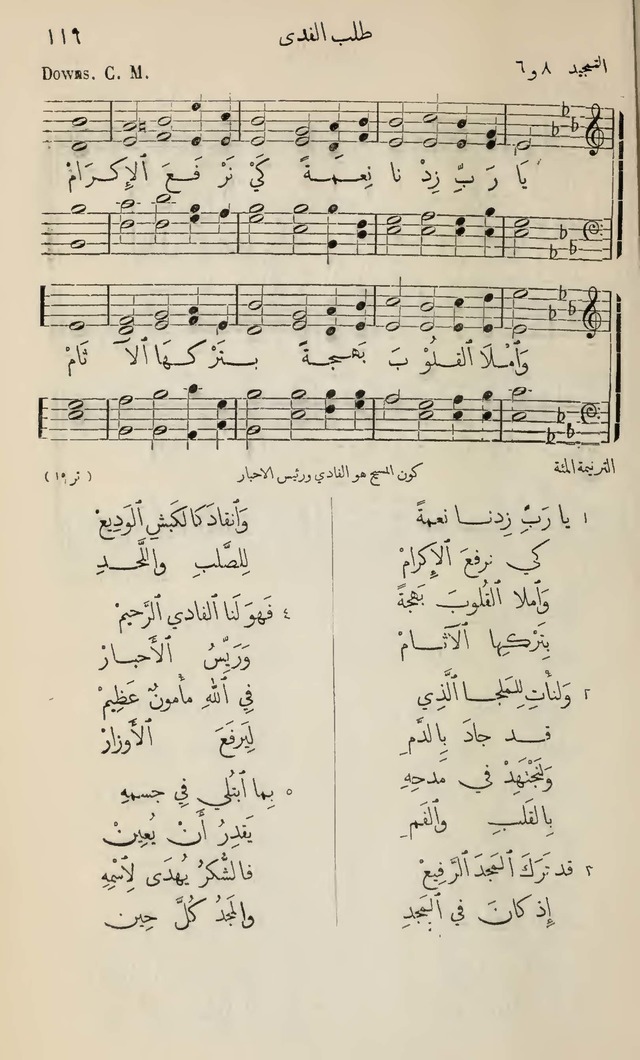 طلب الفدى ١١٩
التمجيد ٨ و ٦ Downs. C. M.
يَا رَبِّ زِدْ نا نِعمَةً كَيْ نَرْ فَعَ ٱلإِكرَامْ
وَٱمْلَا ٱلقُلُوبَ بَهْجَةً بِتَرْكِهَا ٱلآ ثَامْ
الترنيمة المئة كون المسيح هو الفادي ورئيس الاحبار
١ يا رَبِّ زِدنا نعمةً
كي نرفعَ ٱلإِكرَامْ
وَٱملا ٱلقُلُوبَ بَهْجَةً
بِتَرْكِها ٱلآثامْ
٢ وَلنأْتِ لِلمَلجا ٱلَّذِي
قد جادَ بِالدَّمِ
وَلنَجْتَهِدْ في مدحِهِ
بِالقَلبِ والفَمِ
٣ قد تَرَكَ ٱلمَجدَ ٱلرَّفِيعْ
إِذ كانَ في ٱلمجدِ
وَٱنقادَ كالكَبشِ ٱلوَدِيعْ
لِلصَّلبِ واللَّحدِ
٤ فَهوَ لَنا ٱلفادي ٱلرَّحيمْ
وَرَئِيسُ ٱلأَحبارْ
فِي ٱللهِ مأمونٌ عَظِيمْ
لِيَرفَعَ ٱلأَوزارْ
٥ بِما ٱبتُلي فِي جسمهِ
يَقدِرُ أَنْ يُعِينْ
فالشُّكرُ يُهدَى لِٱسْمِهِ
والمَجدُ كُلَّ حِين